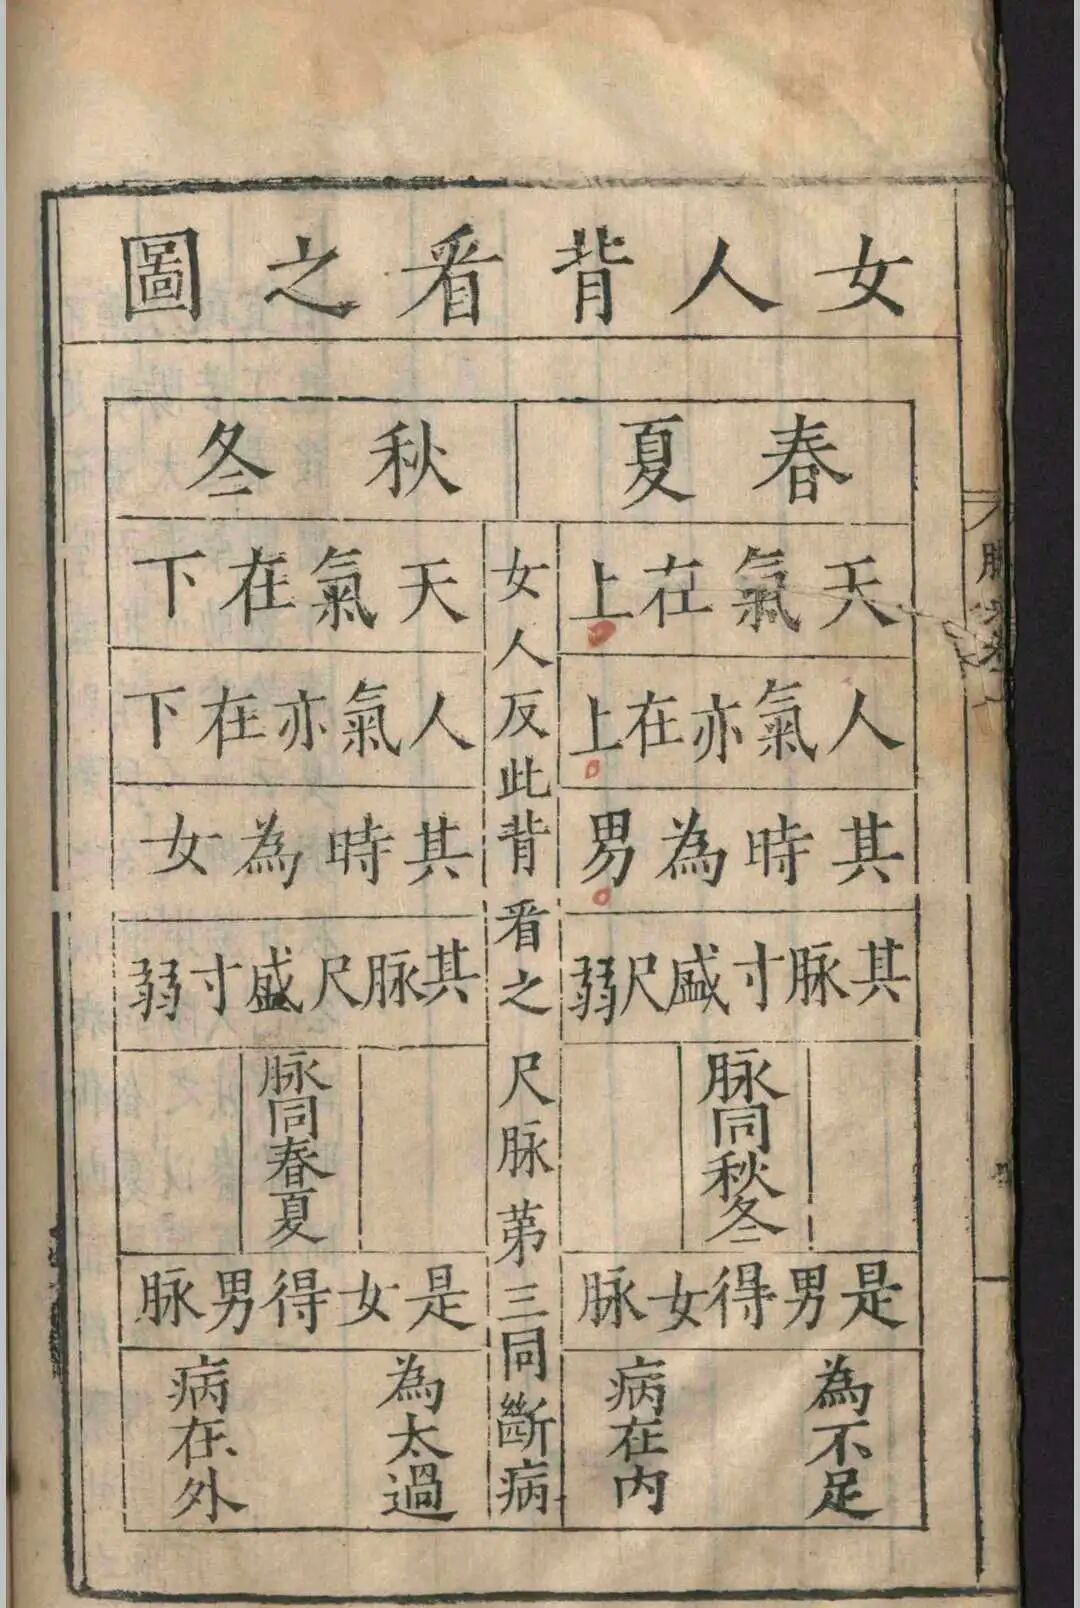 女人背看之圖
春夏
天氣在上
人氣亦在上
其時為男
其脉寸盛尺弱
脉同秋冬
是男得女脉
為不足
病在内
女人反此背看之
尺脉苐三同斷病
秋冬
天氣在下
人氣亦在下
其時為女
其脉尺盛寸弱
脉同春夏
是女得男脉
為太過
病在外